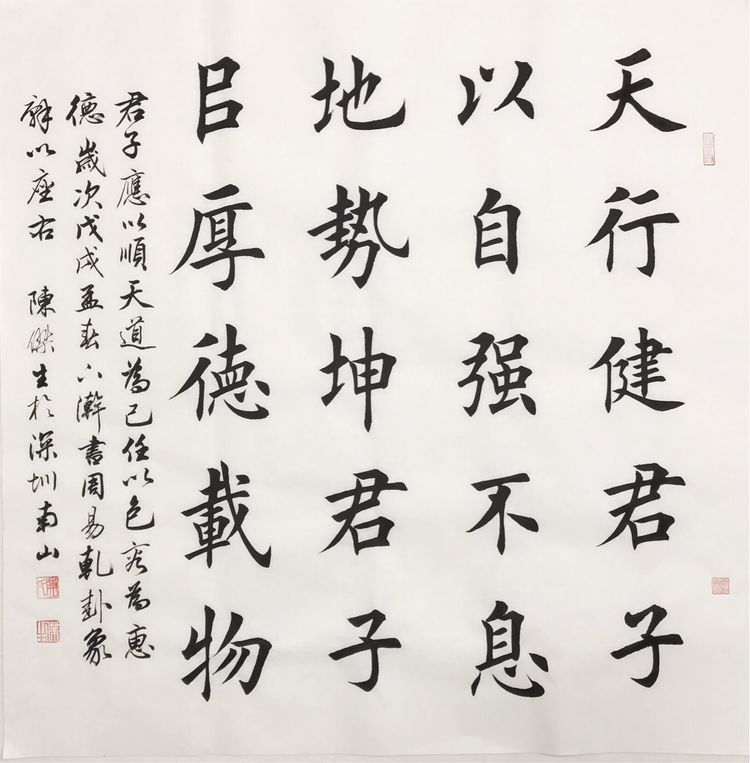 天行健君子
以自强不息
地勢坤君子
㠯厚德載物
君子應以順天道為己任以包容為惠
德歲次戊戌孟春下澣書周易乾卦象
辭以座右 陳傑生於深圳南山